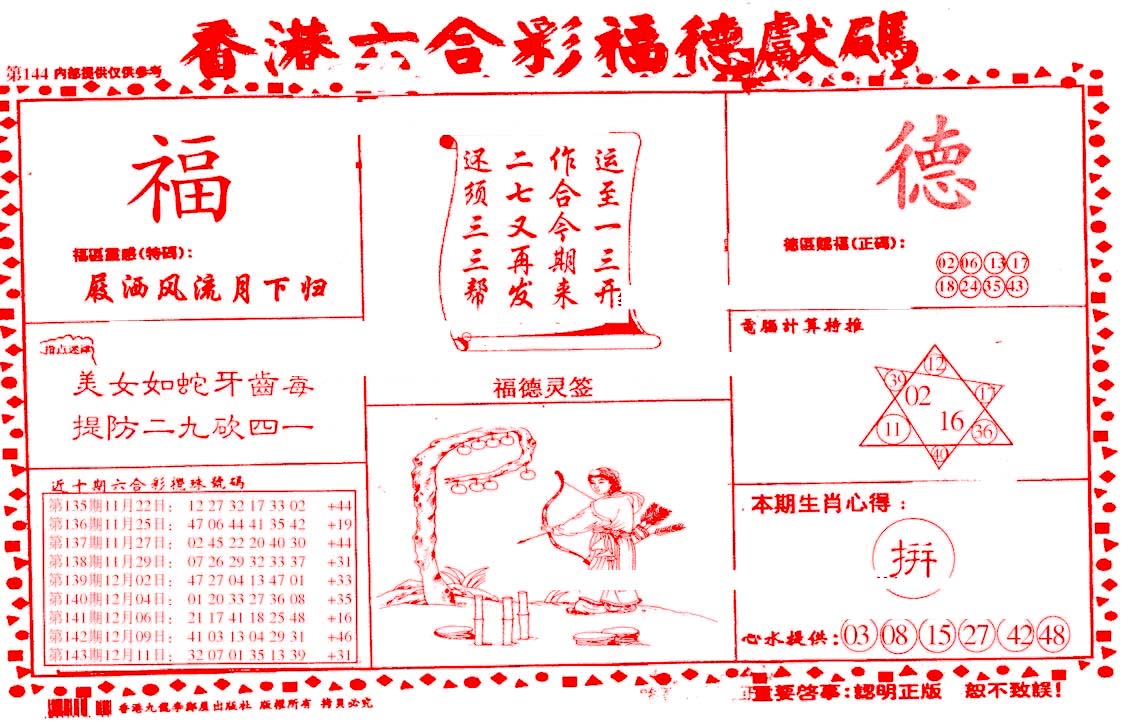 香港六合彩福德獻碼
第144 内部提供仅供参考
福
福區靈感(特碼):
屐洒风流月下归
指点迷津
美女如蛇牙齒毒
提防二九砍四一
近十期六合彩攪珠號碼
第135期11月22日: 12 27 32 17 33 02 +44
第136期11月25日: 47 06 44 41 35 42 +19
第137期11月27日: 02 45 22 20 40 30 +44
第138期11月29日: 07 26 29 32 33 37 +31
第139期12月02日: 47 27 04 13 47 01 +33
第140期12月04日: 01 20 33 27 36 08 +35
第141期12月06日: 21 17 41 18 25 48 +16
第142期12月09日: 41 03 13 04 29 31 +46
第143期12月11日: 32 07 01 35 13 39 +31
运至一三开
作合今期来
二七又再发
还须三三帮
福德灵签
德
德區赐福(正碼):
02 06 13 17
18 24 35 43
電腦計算特推
12
39 02 17
11 16 36
40
本期生肖心得:
拼
心水提供:03 08 15 27 42 48
香港九龍李鄭屋出版社 版權所有 拷貝必究
重要啓事:認明正版 恕不致誤!